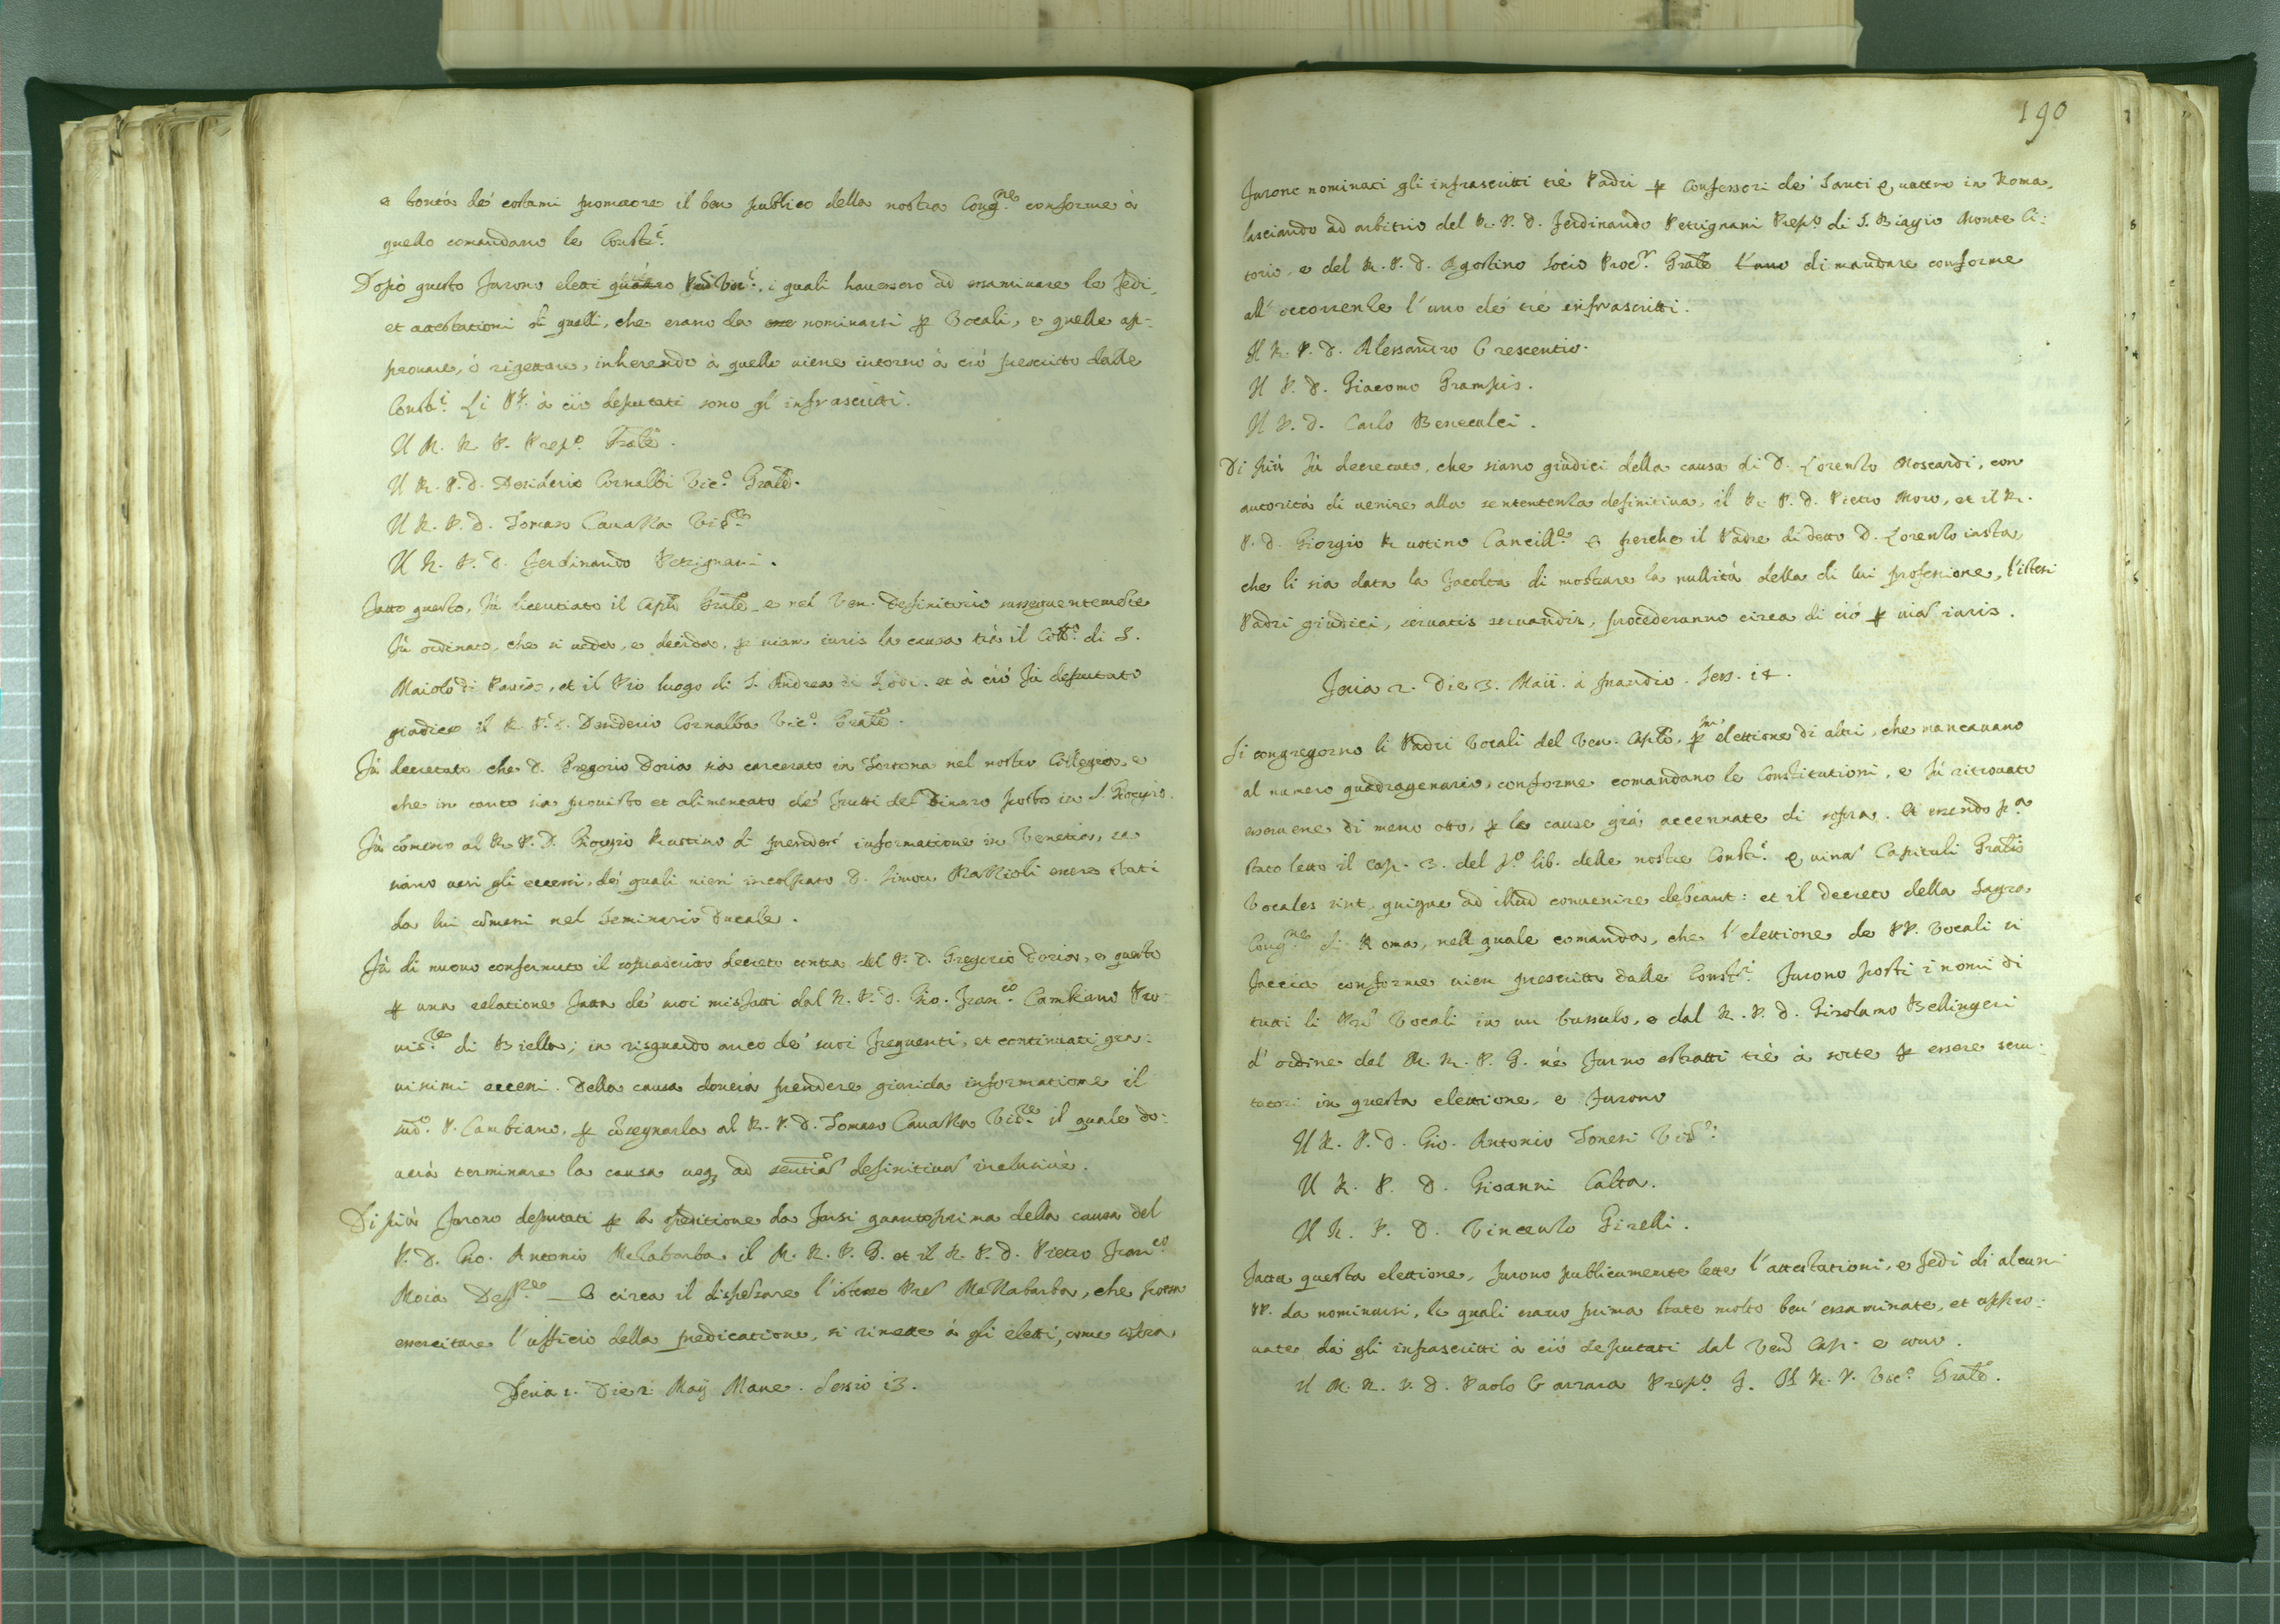 e bontà de' costumi promovere il ben publico della nostra Cong.ne conforme à
quello comandano le Constit.i
Dopò questo furono eletti quattro Padri Voc.i, i quali havessero ad essaminare le fedi,
et attestationi di quelli, che erano da nominarsi p Vocali, e quelle ap-
provare, ò rigettare, inherendo à quello viene intorno à ciò prescritto dalle
Const.i Li PP. à ciò deputati sono gl'infrascritti.
Il M. R. P. Prep.o Grale.
Il R. P. D. Desiderio Cornalbi Vic.o Grale.
Il R. P. D. Tomaso Cavazza Vis.re
Il R. P. D. Ferdinando Petrignani.
Fatto questo, fù licentiato il Cap.lo Grale e nel Ven. Definitorio susseguentemente
fù ordinato, che si veda, e decida, p viam iuris la causa trà il Coll.o di S.
Maiolo di Pavia, et il Pio luogo di S. Andrea di Lodi. et à ciò fù deputato
giudice il R. P. D. Desiderio Cornalba Vic.o Grale.
Fù decretato che D. Gregorio Doria sia carcerato in Tortona nel nostro Collegio, e
che in tanto sia provisto et alimentato de' frutti del Dinaro posto in S. Giorgio.
Fù comesso al R. P. D. Giorgio Rustino di prender' informatione in Venetia, se
siano veri gli eccessi, de' quali vien' incolpato D. Simon Mazzioli essere stati
da lui comessi nel Seminario Ducale.
Fù di nuovo confermato il soprascritto decreto contra del P. D. Gregorio Doria, e questo
p una relatione fatta de' suoi misfatti dal R. P. D. Gio. Fran.co Cambiano Pro-
vis.re di Biella; in risguardo anco de' suoi frequenti, et continuati gra-
vissimi eccessi. Della causa doverà prendere giurida informatione il
sud.o P. Cambiano, p cosegnarla al R. P. D. Tomaso Cavazza Vis.re il quale do-
verà terminare la causa usq ad sentiam definitivam inclusivè.
Di più furono deputati p la speditione da farsi quantoprima della causa del
P. D. Gio. Antonio Mezabarba il M. R. P. G. et il R. P. D. Pietro Fran.co
Moia Deff.re — E circa il dispensare l'istesso Pre Mezzabarba, che possa
essercitare l'ufficio della predicatione, si rimette à gli eletti, come sopra
Feria 2. Die 2. Maij Mane. Sessio 13.
190
Furono nominati gli infrascritti trè Padri p Confessori de' Santi Quattro in Roma,
lasciando ad arbitrio del R. P. D. Ferdinando Petrignani Prep.o di S. Biagio Monte Ci-
torio, e del R. P. D. Agostino Socio Proc.r Grale l'uno di mandare conforme
all'occorrenze l'uno de' trè infrascritti.
Il R. P. D. Alessandro Crescentio.
Il P. D. Giacomo Grampis.
Il P. D. Carlo Benevalci.
Di più fù decretato, che siano giudici della causa di D. Lorenzo Moscardi, con
autorità di venire alla sententenza definitiva, il R. P. D. Pietro Moro, et il R.
P. D. Giorgio Rustino Cancill.o E perche il Padre di detto D. Lorenzo insta,
che li sia data la facoltà di mostrare la nullità della di lui professione, l'istessi
Padri giudici, servatis servandis, procederanno circa di ciò p viam iuris.
Feria 2. Die 3. Maii. à prandio. Sess. 14.
Si congregorno li Padri Vocali del Ven. Cap.lo, p elettione di altri, che mancavano
al numero quadragenario, conforme comandano le Constitutioni, e fù ritrovato
esservene di meno otto, p le cause già accennate di sopra. Et essendo p.a
stato letto il Cap. 3. del p.o lib. delle nostre Const.i Quinam Capituli Gralis
Vocales sint, quique ad illud convenire debeant: et il decreto della Sagra
Cong.ne di Roma, nell quale comanda, che l'elettione de PP. Vocali si
faccia conforme vien prescritto dalle Const.i Furono posti i nomi di
tutti li Pri Vocali in un bussulo, e dal R. P. D. Girolamo Bellingeri
d'ordine del M. R. P. G. ne furno estratti trè à sorte p essere scru-
tatori in questa elettione, e furono
Il R. P. D. Gio. Antonio Sonesi Vis.r
Il R. P. D. Giovanni Calta.
Il R. P. D. Vincenzo Girelli.
Fatta questa elettione, furono publicamente lette l'attestationi, e fedi di alcuni
PP. da nominarsi, le quali erano prima state molto ben' essaminate, et appro-
vate da gli infrascritti à ciò deputati dal Ven. Cap. e sono.
Il M. R. P. D. Paolo Carrara Prep.o G. Il R. P. Vic.o Grale.